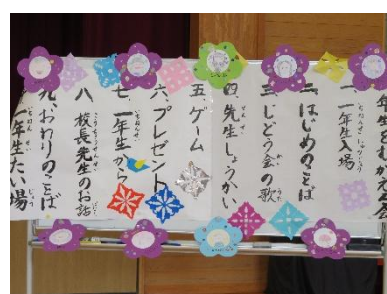 年生をむかえる会
一、一年生入場
二、はじめのことば
三、じどう会の歌
四、先生しょうかい
五、ゲーム
六、プレゼント
七、一年生から
八、校長先生のお話
九、おわりのことば
一年生たい場